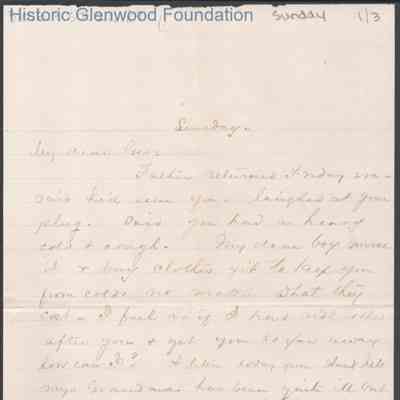 Historic Glenwood Foundation
Sunday 1/3
Sunday.
My dear
Father returned Friday
said he'd seen you. laughed at your
plug. Said you had a heavy
cold & cough. My dear boy
it & buy clothes yet to keep you
from colds no matter what they
cost. I feel as if I have not
after you & yet you so far away
how can I? A letter today from Aunt
says Grandma has been quite ill but